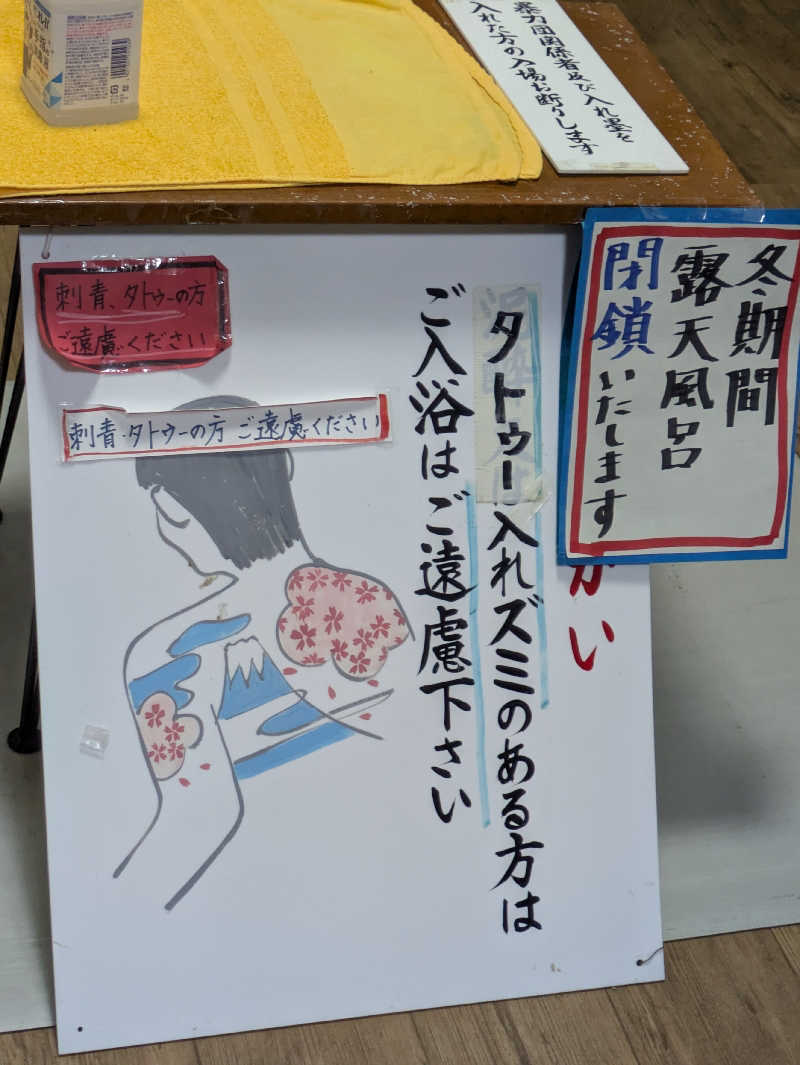 暴力団関係者及び入れ墨を
入れた方の入場お断りします
冬期間
露天風呂
閉鎖いたします
がい
タトゥー入れズミのある方は
ご入浴はご遠慮下さい
刺青、タトゥーの方
ご遠慮ください
刺青・タトゥーの方 ご遠慮ください